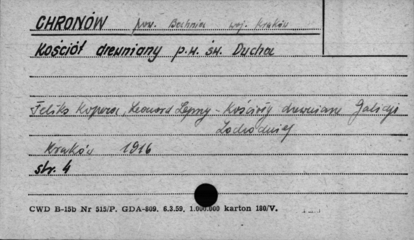 CHRONÓW pow. Bochnia woj. Kraków
Kościół drewniany p.w. św. Ducha
Feliks Kopera, Leonard Lepszy - Kościoły drewniane Galicji
Zachodniej
Kraków 1916
str. 4
CWD B-15b Nr 515/P. GDA-809. 6.3.59. 1.000.000 karton 180/V.